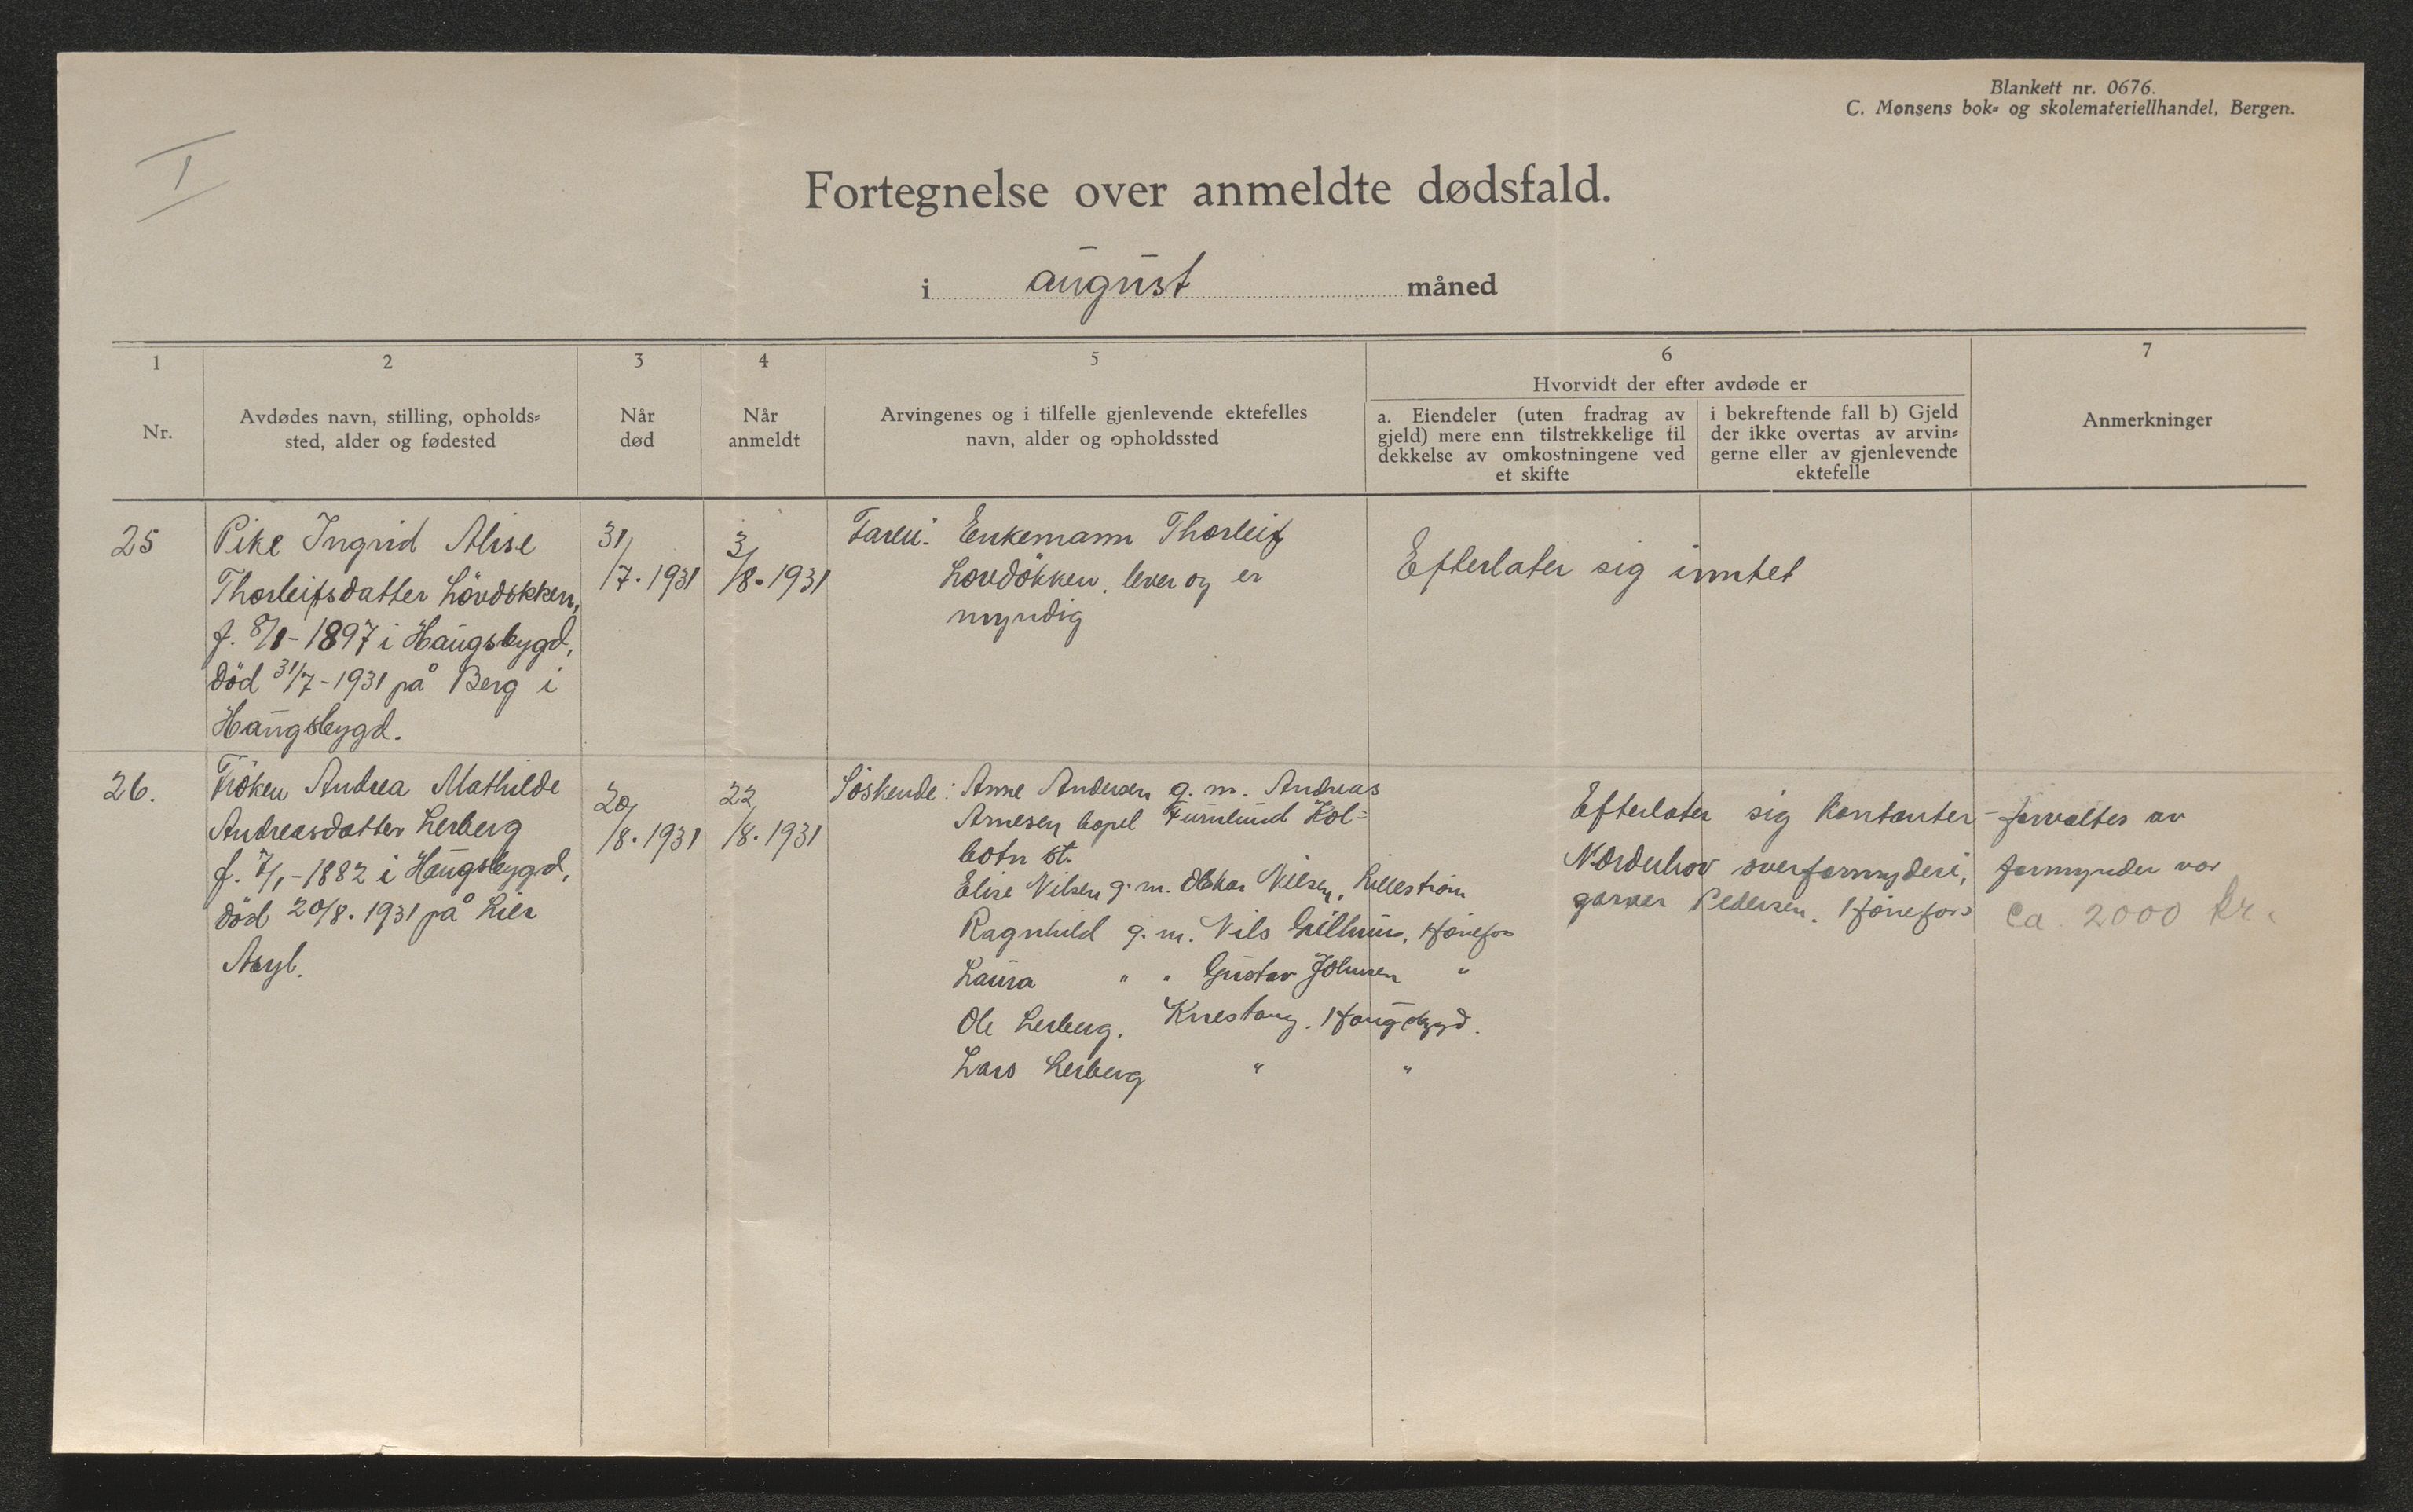 Blankett nr. 0676.
C. Monsens bok- og skolemateriellhandel, Bergen.
I
Fortegnelse over anmeldte dødsfald.
i august måned
1
Nr.
2
Avdødes navn, stilling, opholds-
sted, alder og fødested
3
Når
død
4
Når
anmeldt
5
Arvingenes og i tilfelle gjenlevende ektefelles
navn, alder og opholdssted
6
Hvorvidt der efter avdøde er
a. Eiendeler (uten fradrag av
gjeld) mere enn tilstrekkelige til
dekkelse av omkostningene ved
et skifte
i bekreftende fall b) Gjeld
der ikke overtas av arvin-
gerne eller av gjenlevende
ektefelle
7
Anmerkninger
25
Pike Ingrid Alise
Thorleifsdatter Lövdokken,
f. 8/1-1897 i Haugsbygd,
död 31/7-1931 på Berg i
Haugsbygd.
31/7.1931
3/8.1931
Enkemann Thorleif
Lövdökken, lever og er
myndig
Efterlater sig inntet
26.
Fröken Andrea Mathilde
Andreasdatter Lerberg
f. 7/1-1882 i Haugsbygd,
död 20/8.1931 på Lier
Asyl.
20/8.1931
22/8.1931
Söskende: Anne Andersen g. m. Andreas
Arnesen bopel Furulund Kol-
botn st.
Elise Nilsen g. m. Oskar Nilsen, Lillestrøm
Ragnhild g. m. Nils Gillhus, Hönefos
Laura " " Gustav Johnsen "
Ole Lerberg, Knestang, Haugsbygd.
Lars Lerberg " "
Efterlater sig kontanter - forvaltes av
Norderhov overformynderi, formynder var
garver Pedersen, Hönefoss ca. 2000 kr.